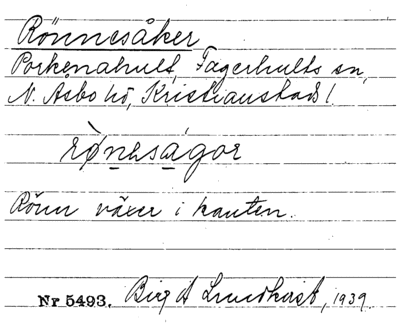 Rönnesåker
Porkenahult, Fagerhults sn,
N. Åsbo hd, Kristianstads l.
rø̀nesågor
Rönn växer i kanten.
Nr 5493. Birgit Lundkvist, 1939.